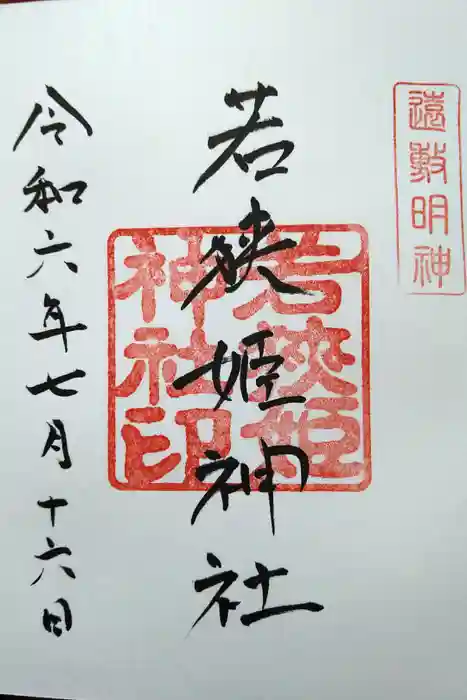 遠敷明神
若狭姫神社
若狭姫
神社印
令和六年七月十六日